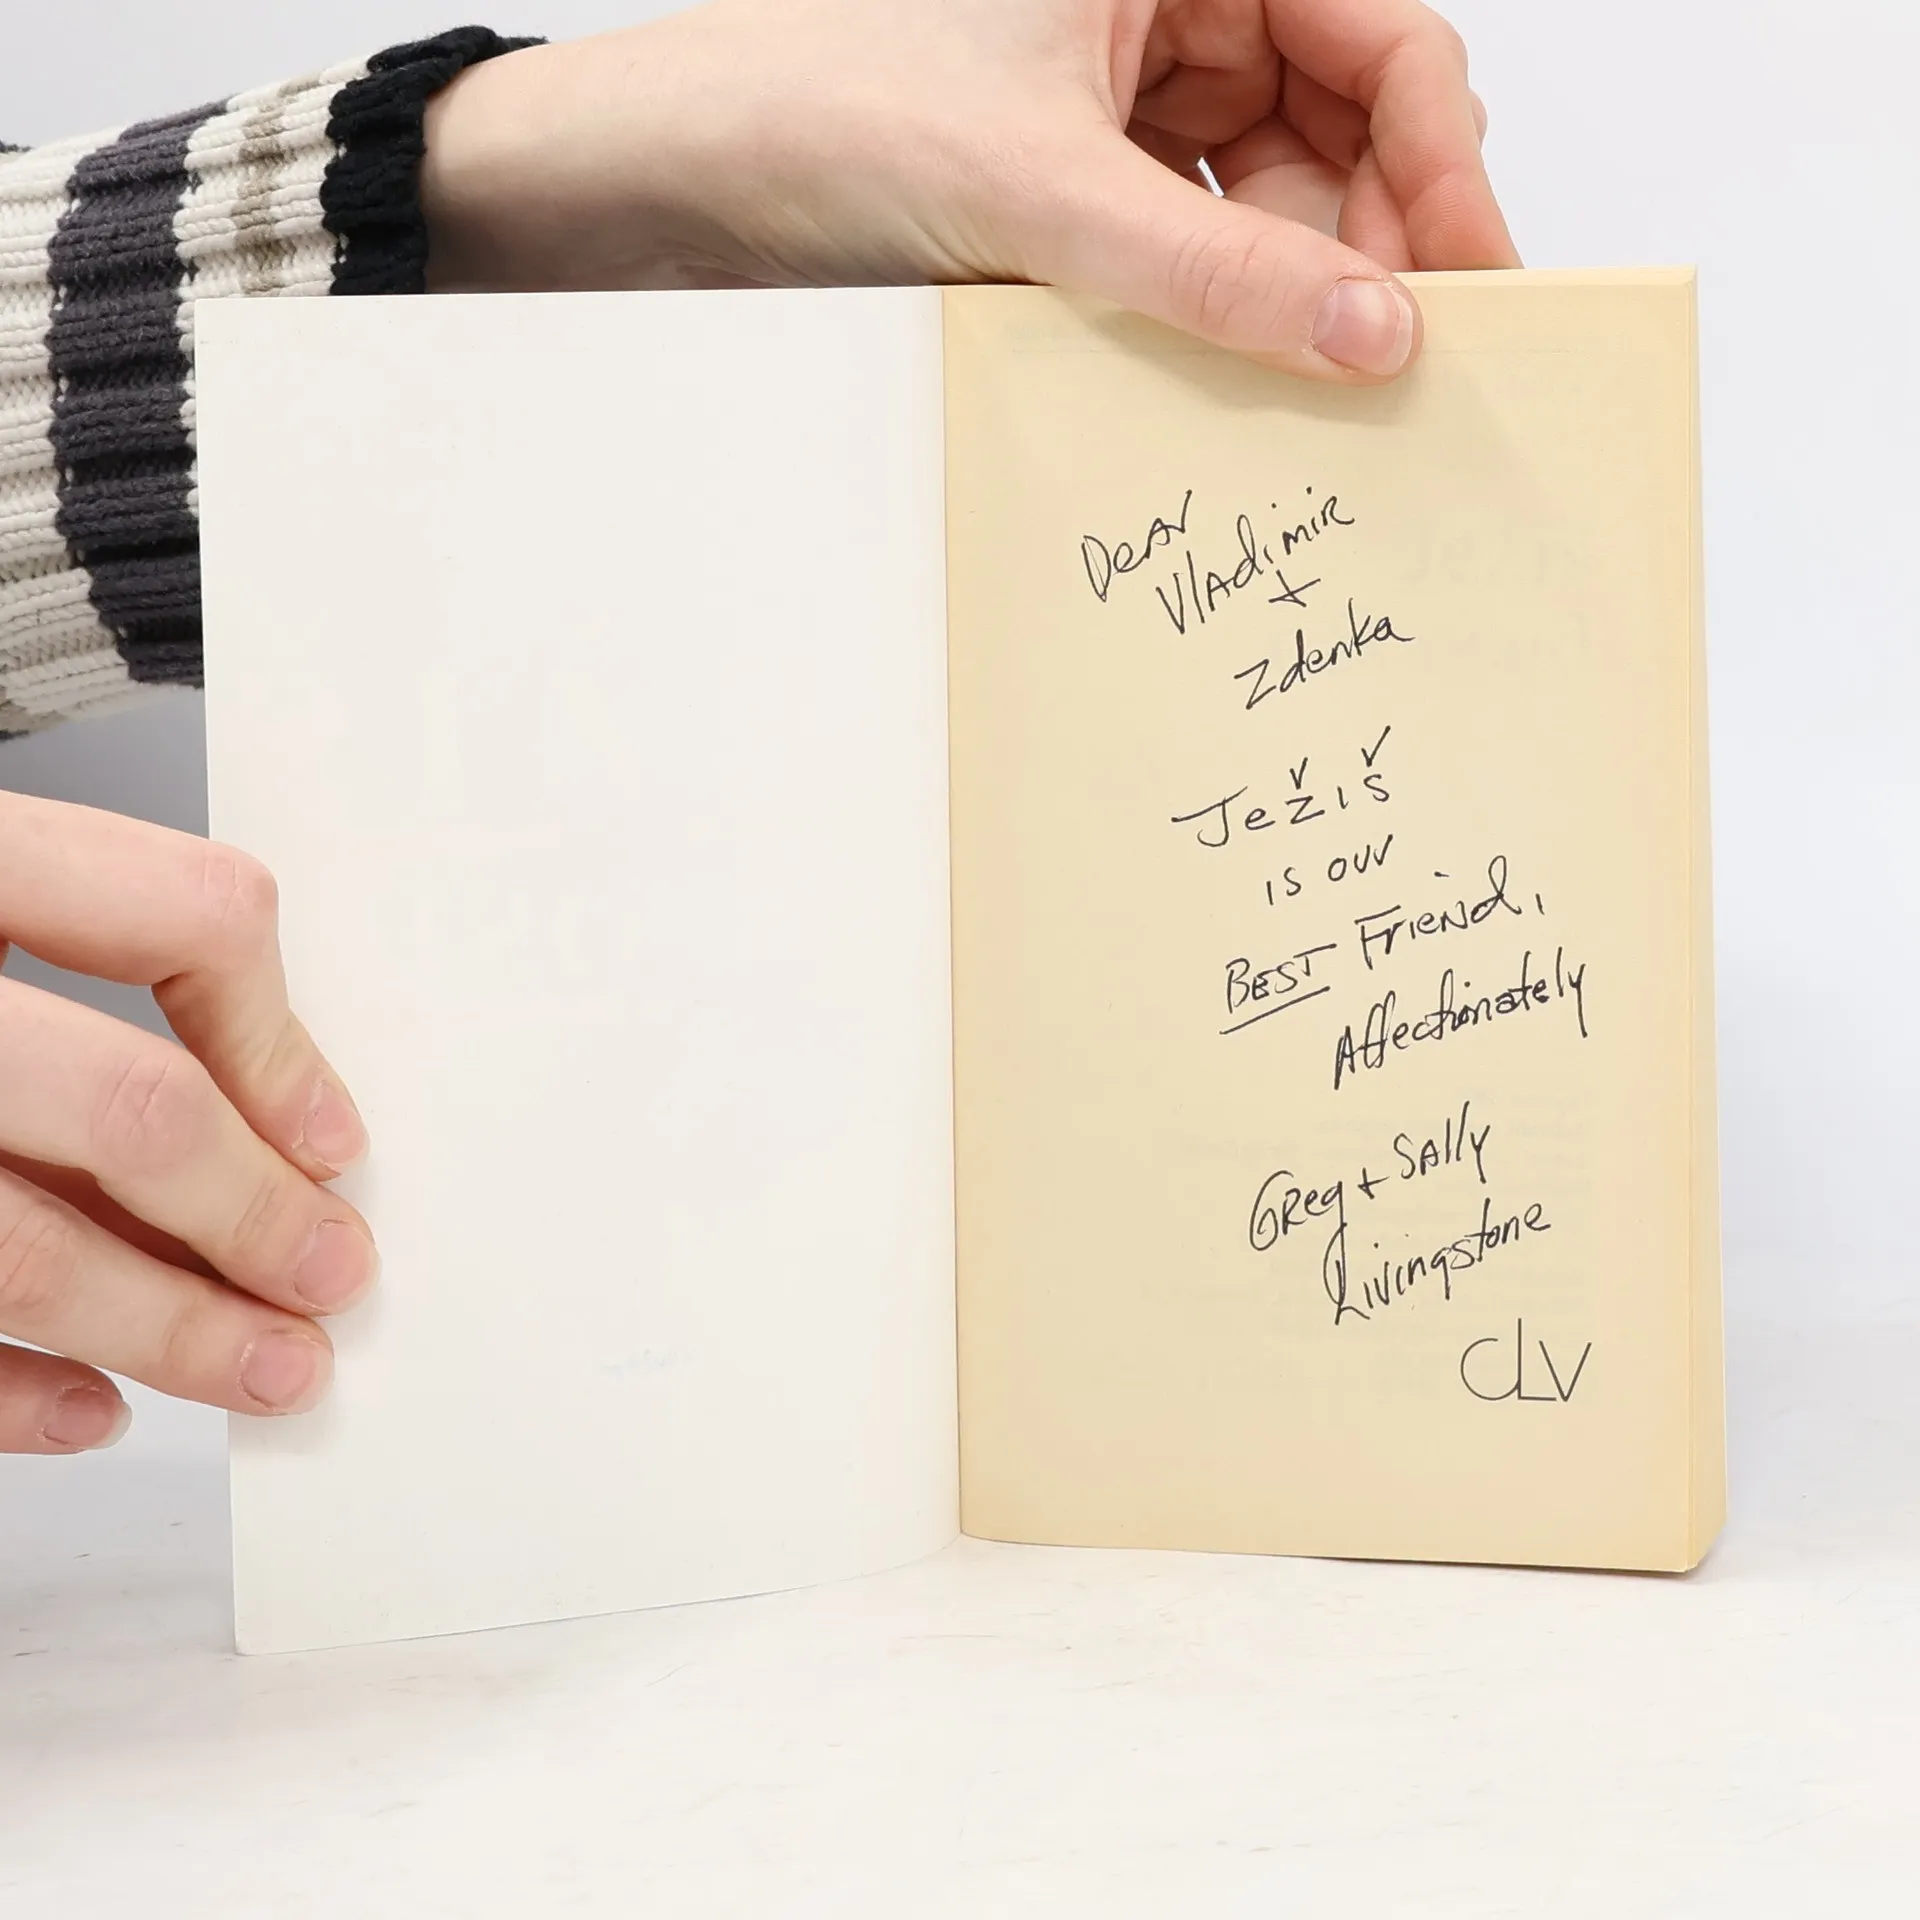 Dear
Vladimir
+
Zdenka
Ježiš
is our
BEST Friend,
Affectionately
Greg + Sally
Livingstone
CLV